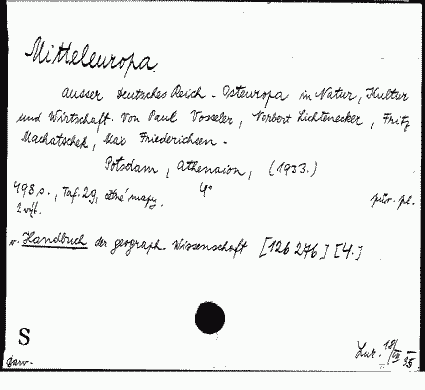 Mitteleuropa
ausser Deutsches Reich - Osteuropa in Natur, Kultur
und Wirtschaft. Von Paul Vosseler, Norbert Lichtenecker, Fritz
Machatschek, Max Friederichsen -
Potsdam, Athenaion, (1933.)
498 s., Taf. 29, četné mapy. 4° pův. pl.
2 výt.
v. Handbuch der geograph. Wissenschaft [126 276] [4.]
S
Lur. 18/III 35
Darw-